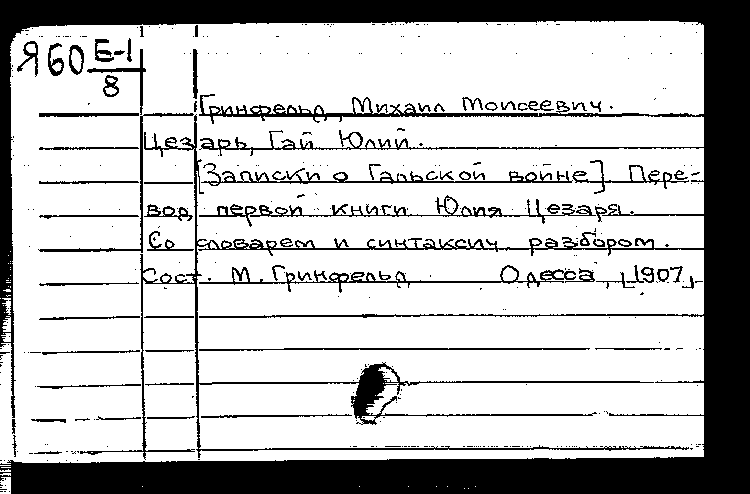 Я60 Б-1
8
Гринфельд, Михаил Моисеевич.
Цезарь, Гай Юлий.
[Записки о Гальской войне]. Пере-
вод первой книги Юлия Цезаря.
Со словарем и синтаксич. разбором.
Сост. М. Гринфельд Одесса, [1907]